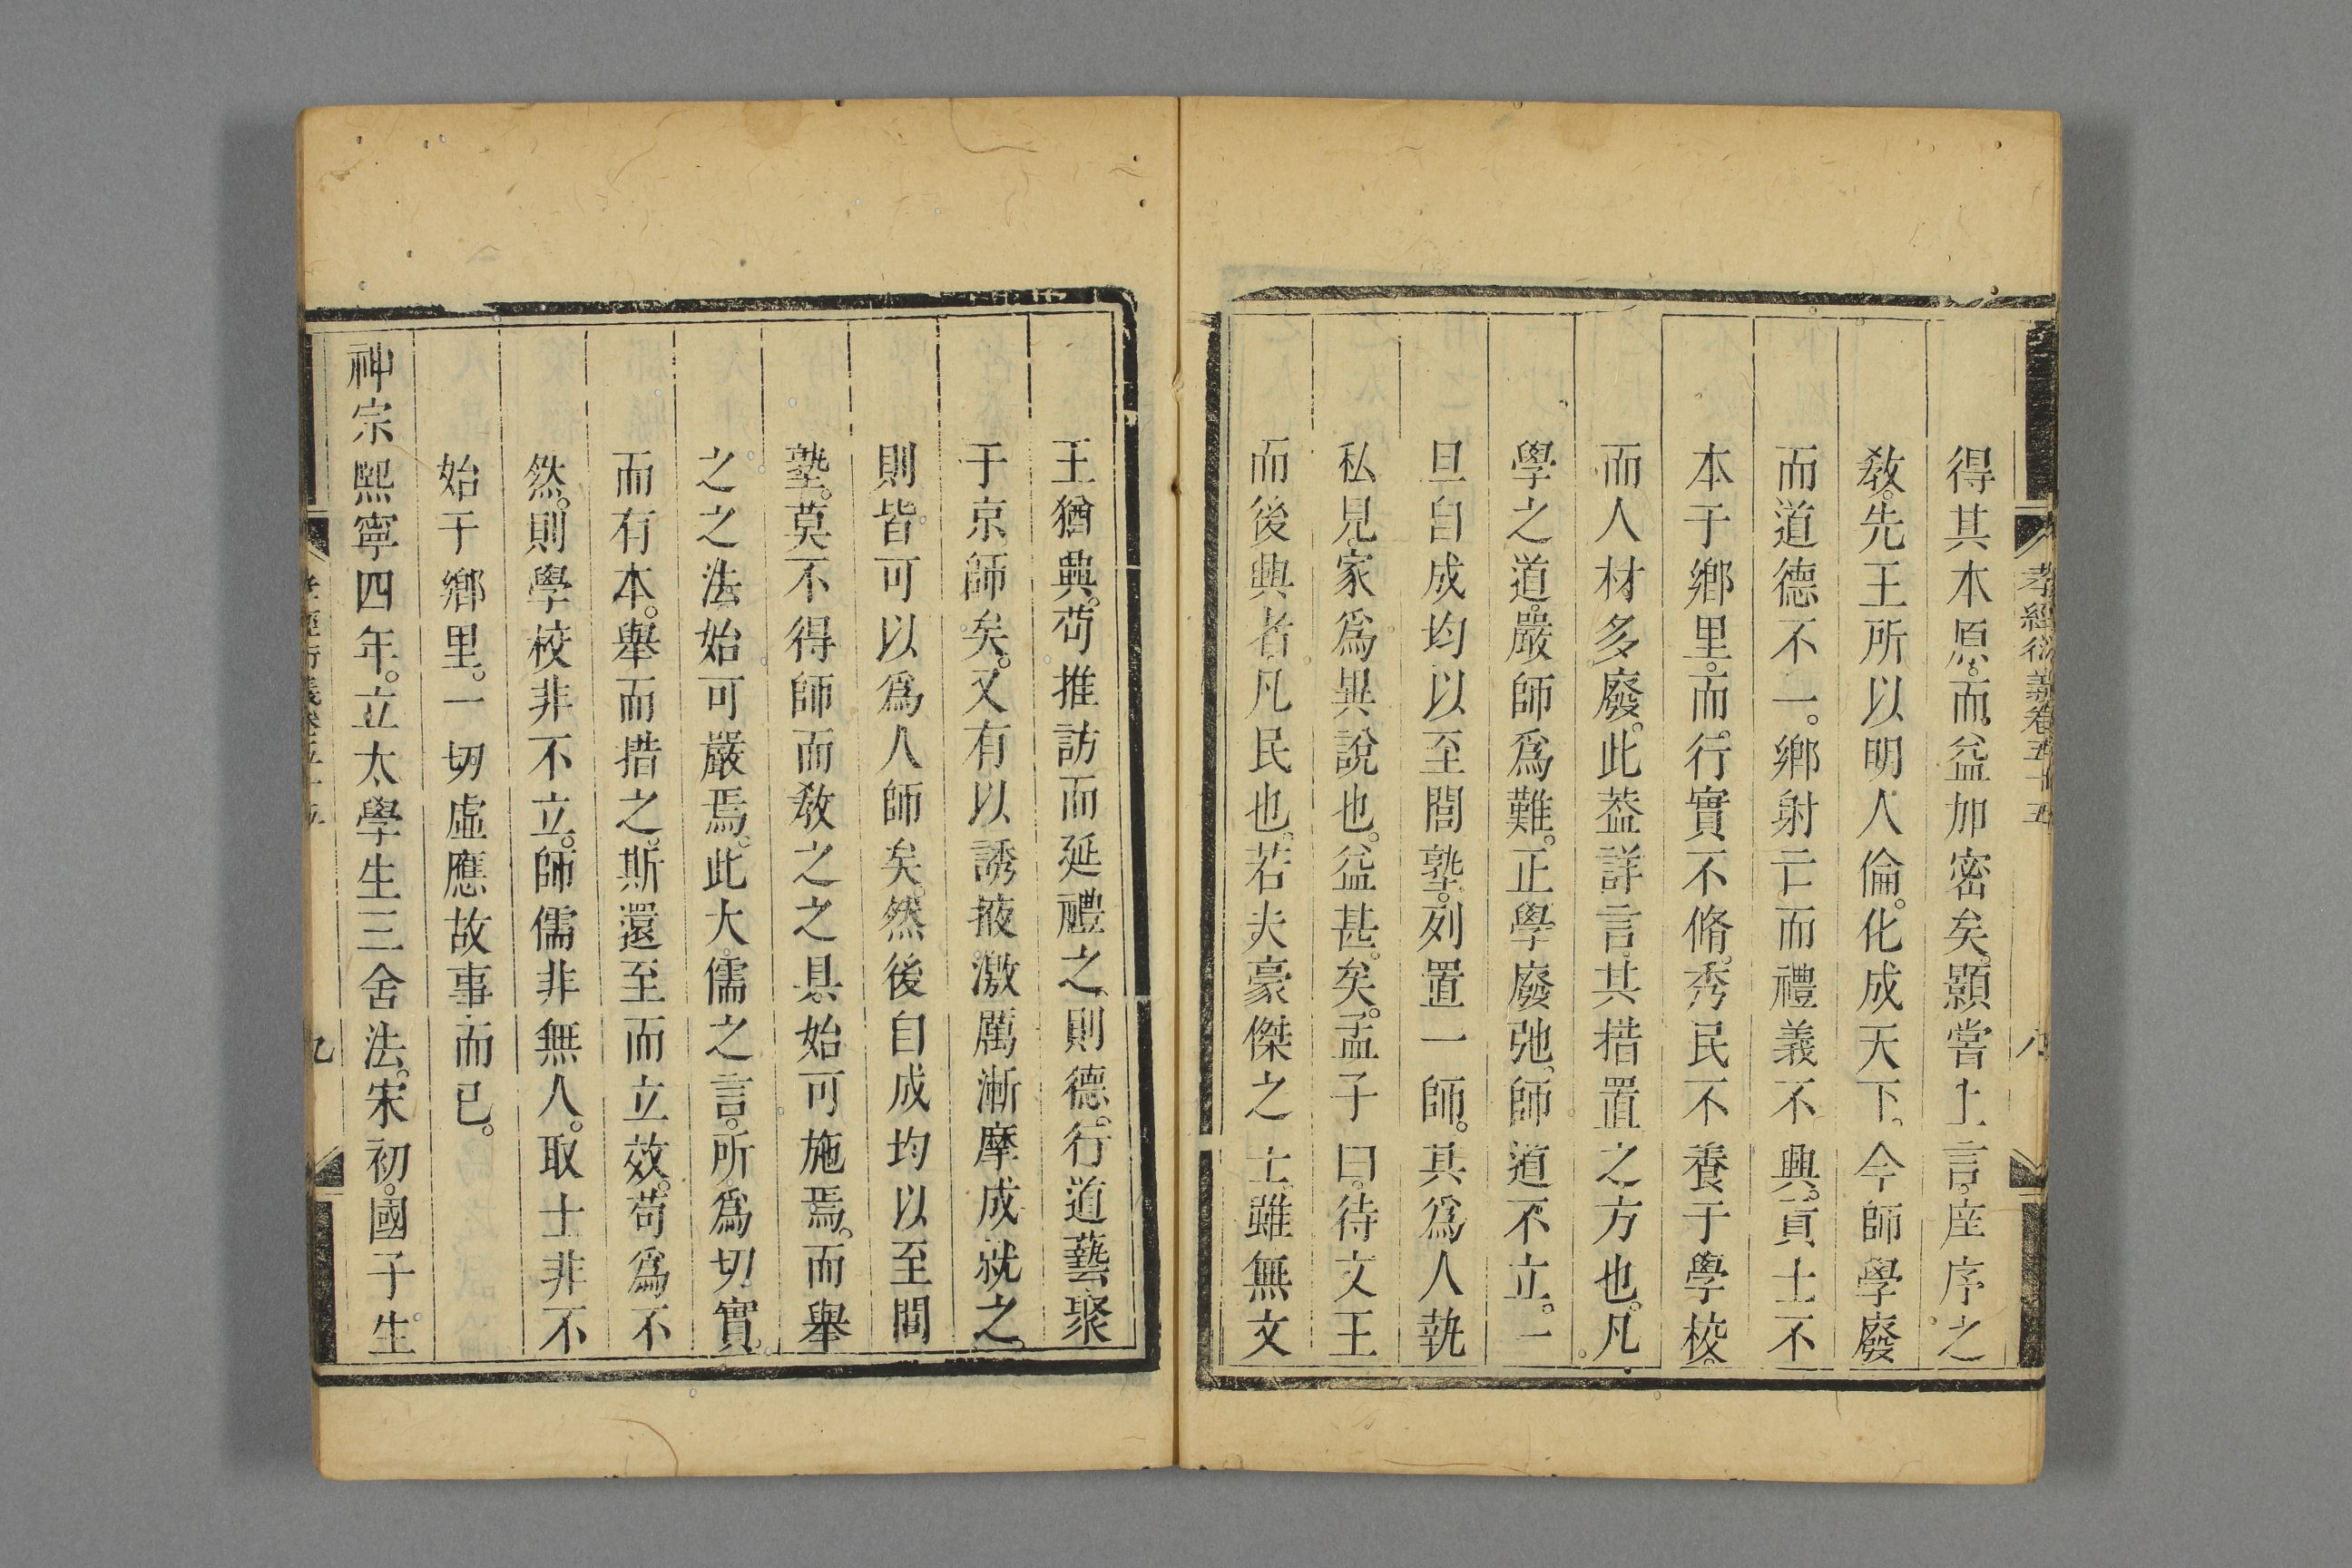 孝經衍義卷五十五
八
得其本原。而益加密矣。顥嘗上言。庠序之
敎。先王所以明人倫。化成天下。今師學廢
而道德不一。鄉射亡而禮義不興。貢士不
本于鄉里。而行實不脩。秀民不養于學校。
而人材多廢。此葢詳言其措置之方也。凡
學之道。嚴師爲難。正學廢弛。師道不立。一
旦自成均以至閭塾。列置一師。其爲人執
私見。家爲異說也。益甚矣。孟子曰。待文王
而後興者。凡民也。若夫豪傑之士。雖無文
王猶興。苟推訪而延禮之。則德行道藝聚
于京師矣。又有以誘掖激厲漸摩成就之。
則皆可以爲人師矣。然後自成均以至閭
塾。莫不得師而敎之之具。始可施焉。而舉
之之法始可嚴焉。此大儒之言。所爲切實
而有本。舉而措之。斯還至而立效。苟爲不
然。則學校非不立。師儒非無人。取士非不
始于鄉里。一切虛應故事而已。
神宗熙寧四年。立太學生三舍法。宋初。國子生
孝經衍義卷五十五
九